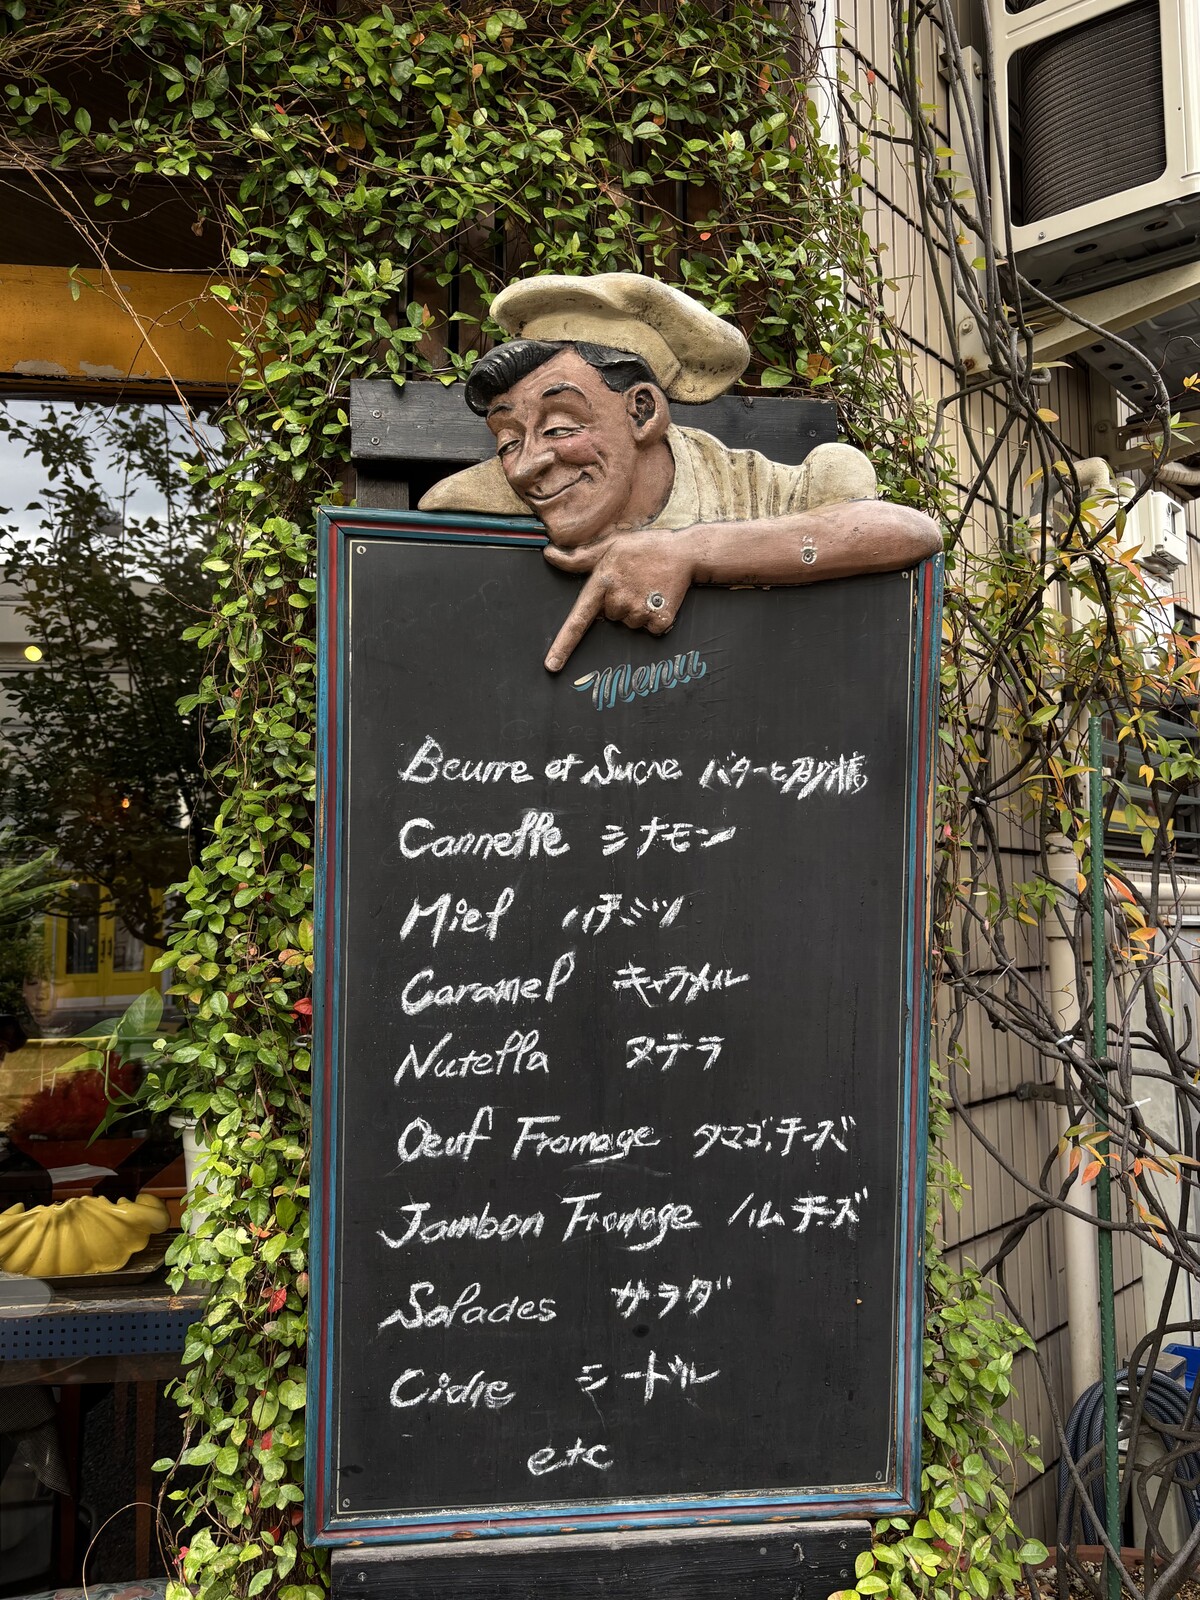 Menu
Beurre et Sucre バターと砂糖
Cannelle シナモン
Miel ハチミツ
Caramel キャラメル
Nutella ヌテラ
Oeuf Fromage タマゴ,チーズ
Jambon Fromage ハム チーズ
Salades サラダ
Cidre シードル
etc